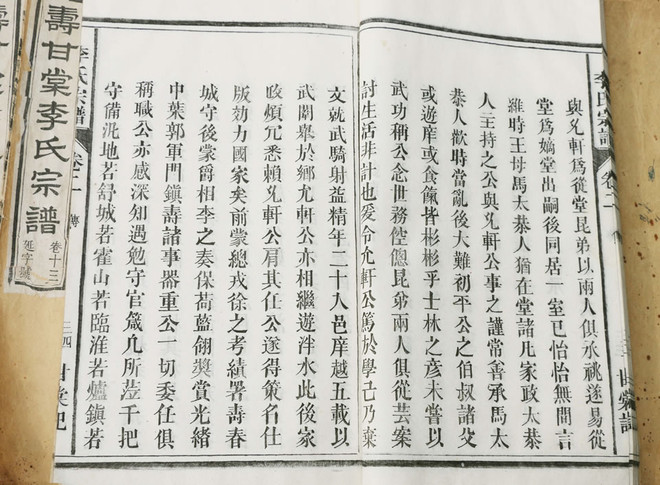 李氏宗譜
與允軒為從堂昆弟以兩人俱承祧遂易從
堂為嫡堂出嗣後同居一室已怡怡無間言
維時王母馬太恭人猶在堂諸凡家政太恭
人主持之公與允軒公事之謹常善承馬太
恭人歡時當亂後大難初平公之伯叔諸父
或遊庠或食餼皆彬彬乎士林之彥未嘗以
武功稱公念世務倥傯昆弟兩人俱從芸案
討生活非計也爰令允軒公篤於學己乃棄
文就武騎射益精年二十入邑庠越五載以
武闈舉於鄉允軒公亦相繼遊泮水此後家
政煩冗悉賴允軒公肩其任公遂得策名仕
版効力國家矣前蒙總戎徐之考績署壽春
城守後蒙爵相李之奏保荷藍翎獎賞光緒
中葉郭軍門鎮壽諸事器重公一切委任俱
稱職公亦感深知遇勉守官箴凡所蒞千把
守備汛地若舒城若霍山若臨淮若爐鎮若
李氏宗譜
傳
三四
壽甘棠李氏宗譜
卷十三
延字號